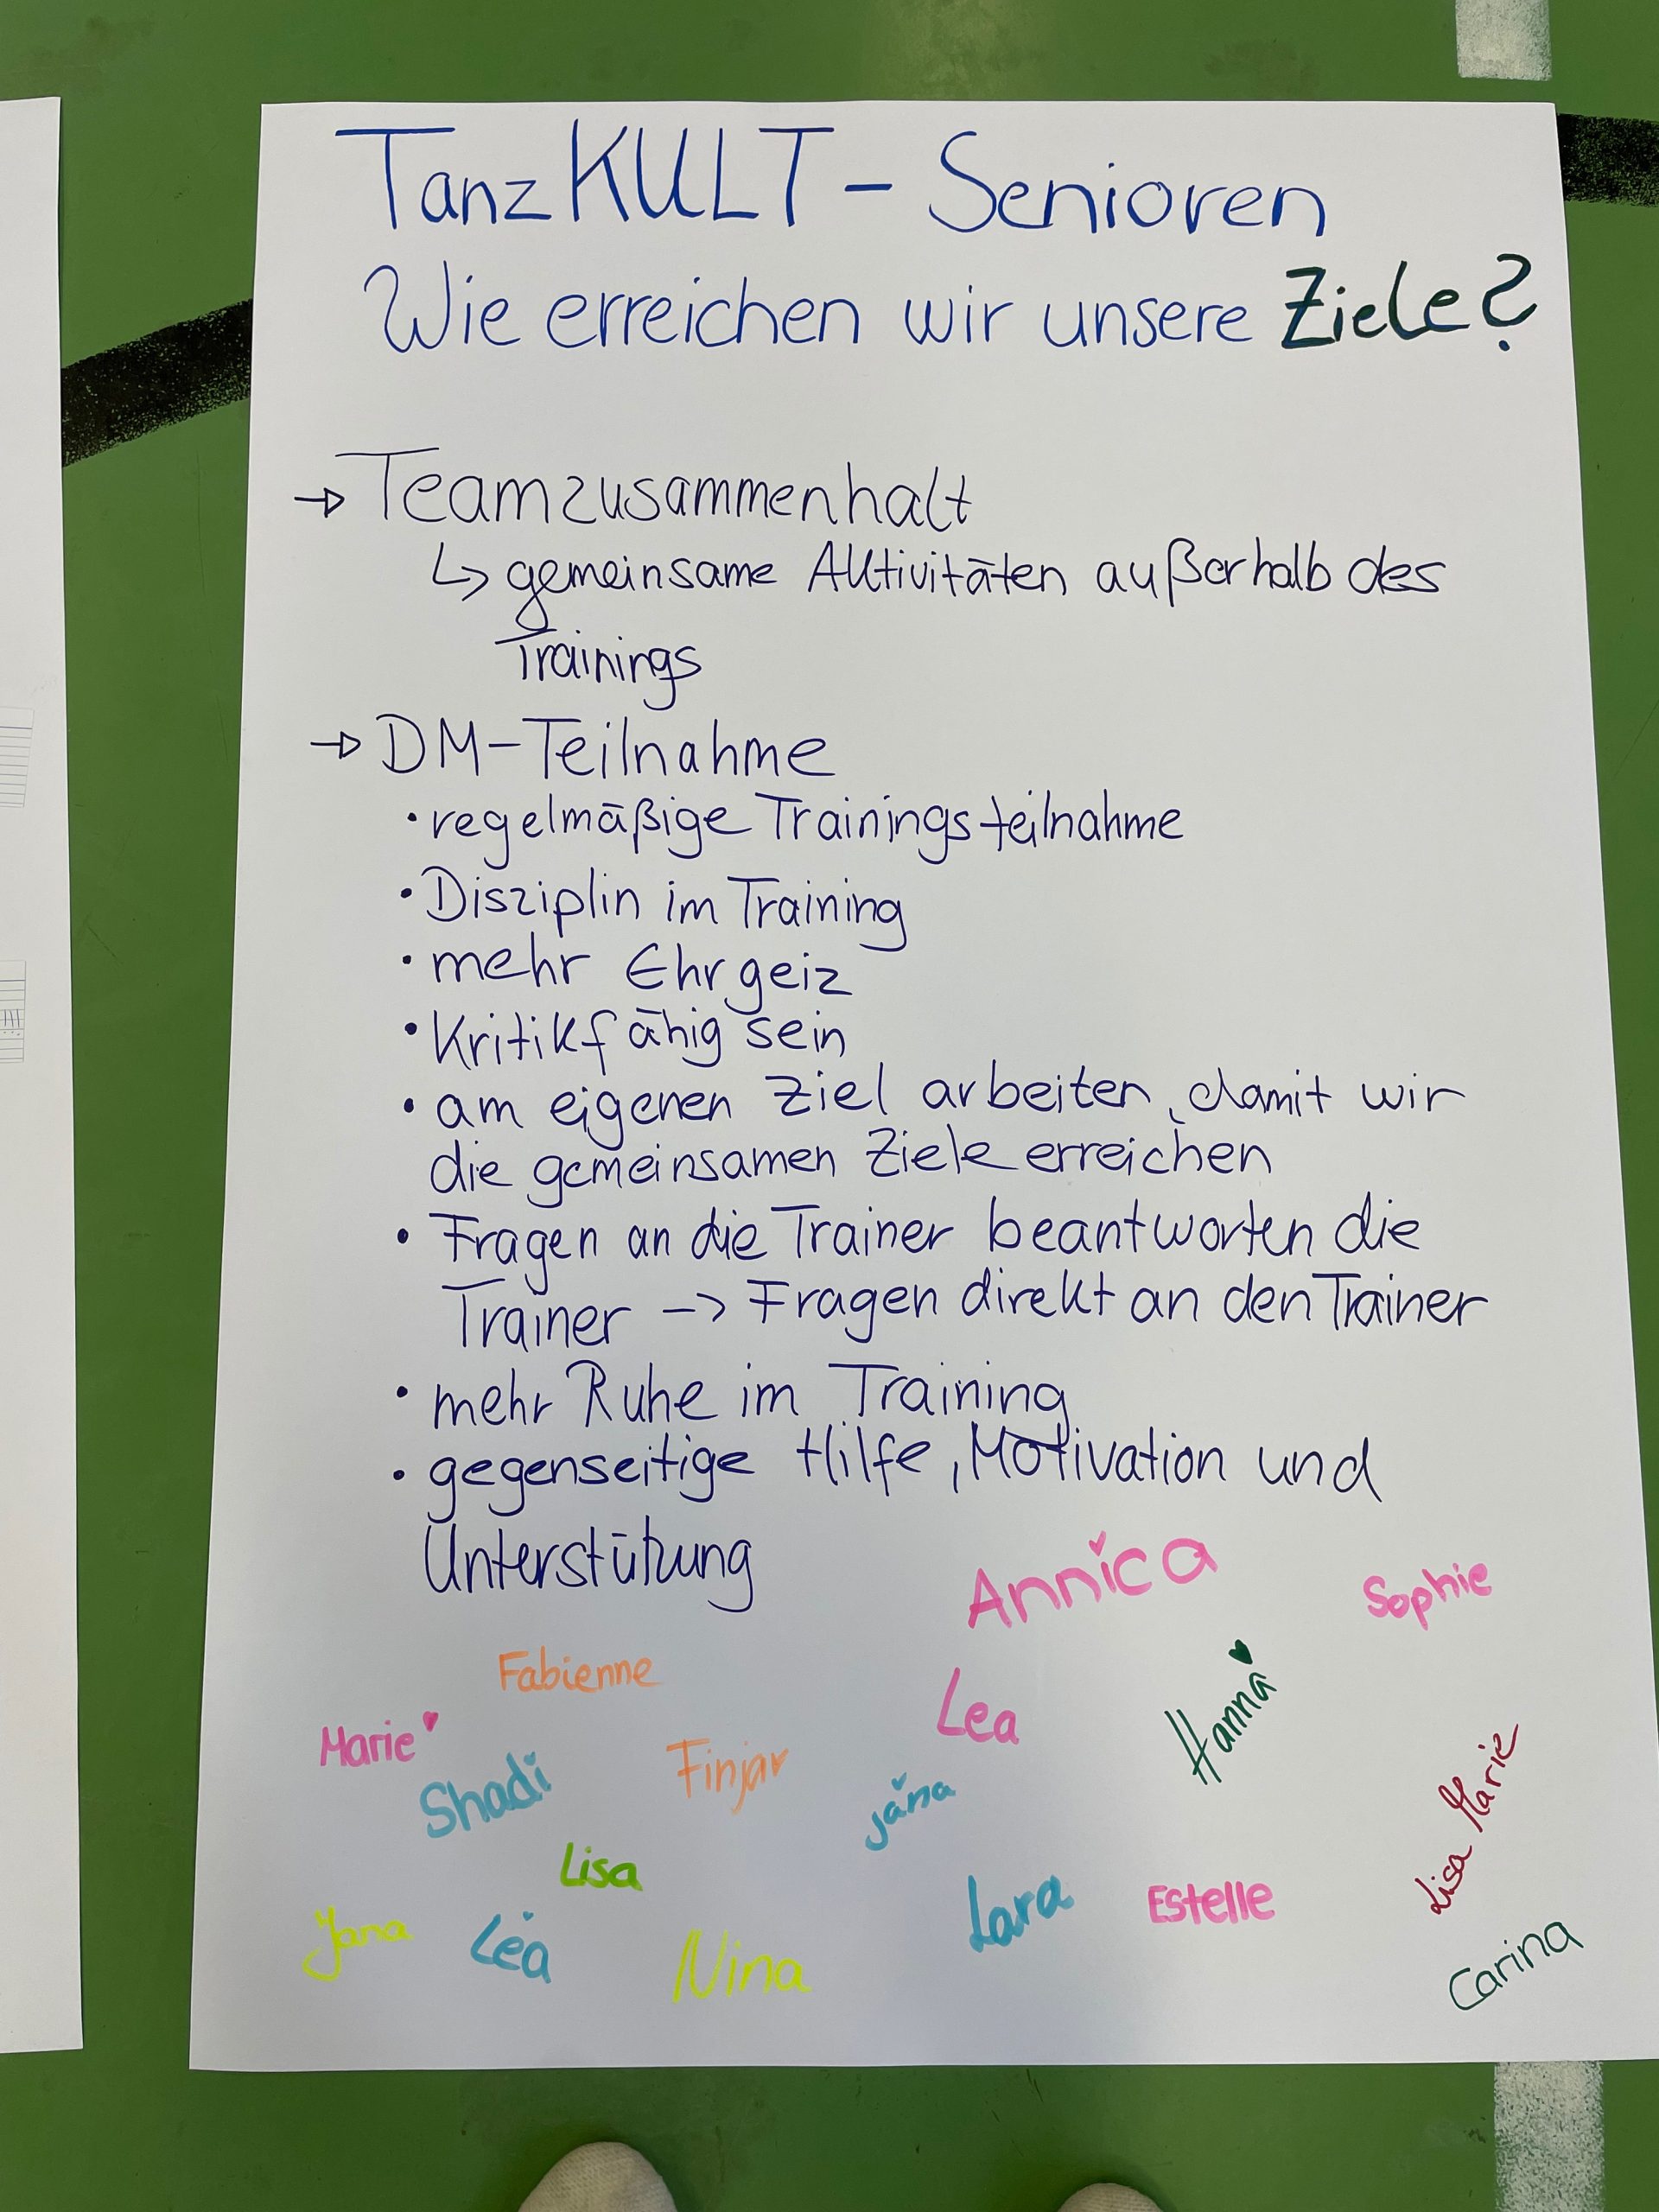 TanzKULT - Senioren
Wie erreichen wir unsere Ziele?
→ Teamzusammenhalt
↳ gemeinsame Aktivitäten außerhalb des
Trainings
→ DM-Teilnahme
• regelmäßige Trainingsteilnahme
• Disziplin im Training
• mehr Ehrgeiz
• Kritikfähig sein
• am eigenen Ziel arbeiten, damit wir
die gemeinsamen Ziele erreichen
• Fragen an die Trainer beantworten die
Trainer -> Fragen direkt an den Trainer
• mehr Ruhe im Training
• gegenseitige Hilfe, Motivation und
Unterstützung
Annica
Sophie
Fabienne
Lea
Hanna
Marie
Shadi
Finja
Jana
Lisa Marie
Lisa
Lara
Estelle
Jana
Lea
Nina
Carina